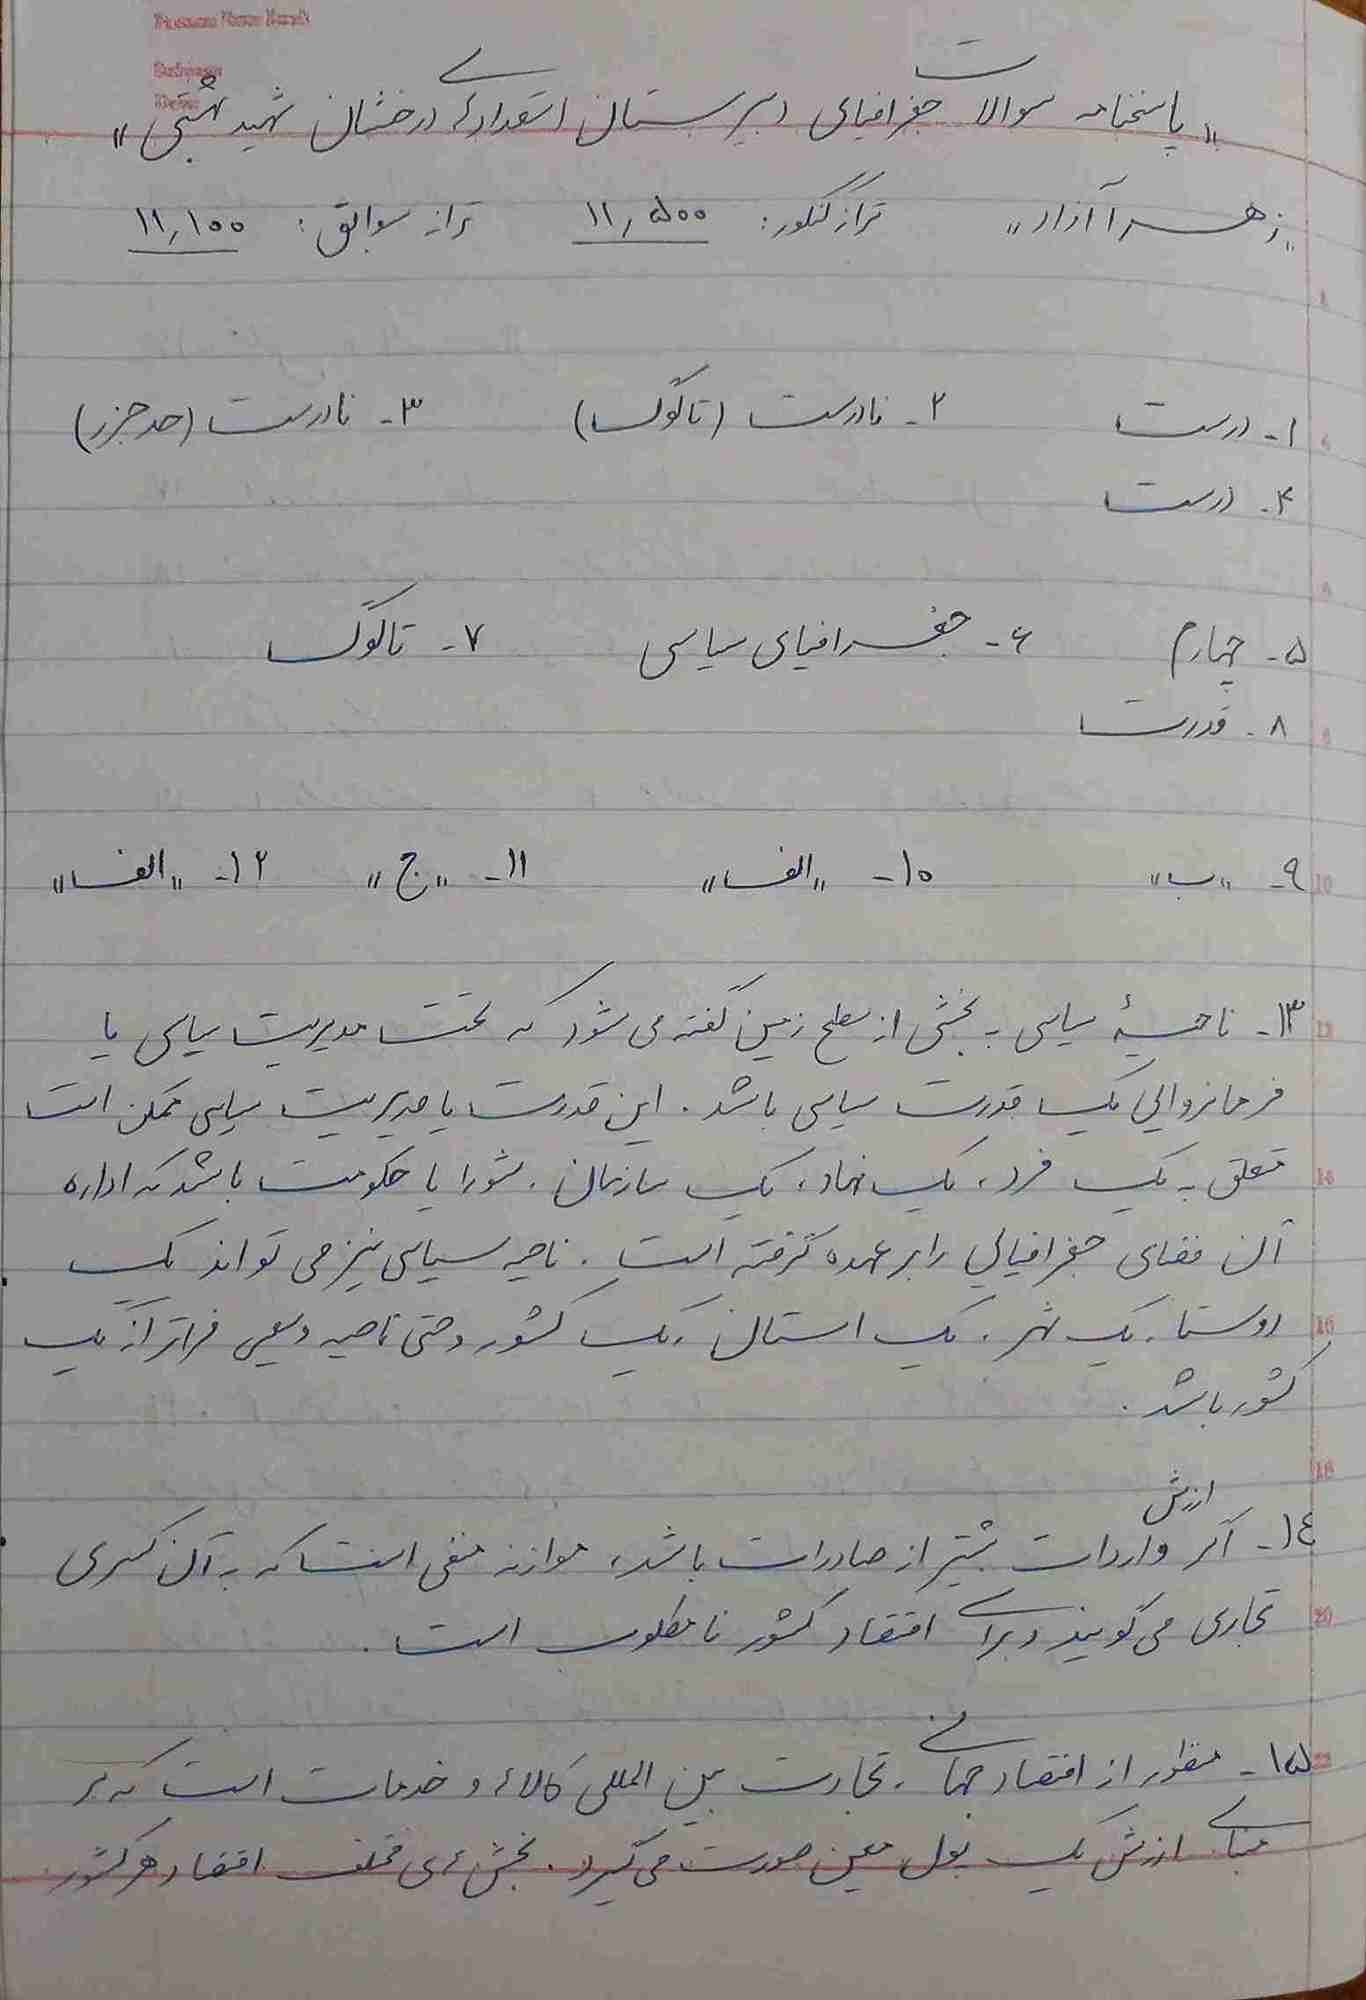 «پاسخنامه سوالات جغرافیای دبیرستان استعدادهای درخشان شهید بهشتی»
«زهرا آزاد» تراز کنکور: ۱۱٫۵۰۰ تراز سوابق: ۱۱٫۱۰۰
۱- درست ۲- نادرست (تالوگ) ۳- نادرست (حد جزر)
۴- درست
۵- چهارم ۶- جغرافیای سیاسی ۷- تالوگ
۸- قدرت
۹- «ب» ۱۰- «الف» ۱۱- «ج» ۱۲- «الف»
۱۳- ناحیهٔ سیاسی به بخشی از سطح زمین گفته می شود که تحت مدیریت سیاسی یا
فرمانروایی یک قدرت سیاسی باشد. این قدرت یا مدیریت سیاسی ممکن است
متعلق به یک فرد، یک نهاد، یک سازمان، شورا یا حکومت باشد که اداره
آن فضای جغرافیایی را بر عهده گرفته است. ناحیه سیاسی نیز می تواند یک
روستا، یک شهر، یک استان، یک کشور و حتی ناحیه وسیعی فراتر از یک
کشور باشد.
۱۴- اگر ارزش واردات بیشتر از صادرات باشد، موازنه منفی است که به آن کسری
تجاری می گویند و برای اقتصاد کشور نامطلوب است.
۱۵- منظور از اقتصاد جهانی، تجارت بین المللی کالاها و خدمات است که بر
مبنای ارزش یک پول معین صورت می گیرد. بخش های مختلف اقتصاد هر کشور